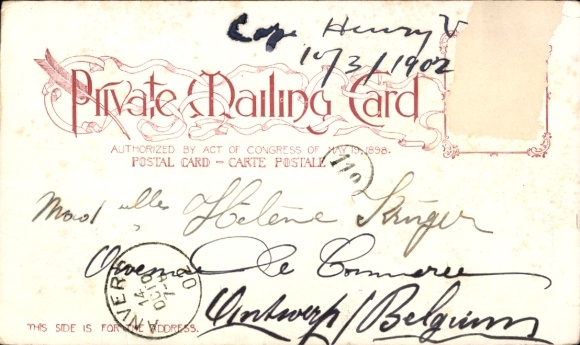 Cape Henry V
10/3/1902
Private Mailing Card
AUTHORIZED BY ACT OF CONGRESS OF MAY 19, 1898.
POSTAL CARD – CARTE POSTALE
119
Mad elles Helène Krüger
de Commerce
Antwerp/Belgium
ANVERS
14
OCTO
THIS SIDE IS FOR THE ADDRESS.